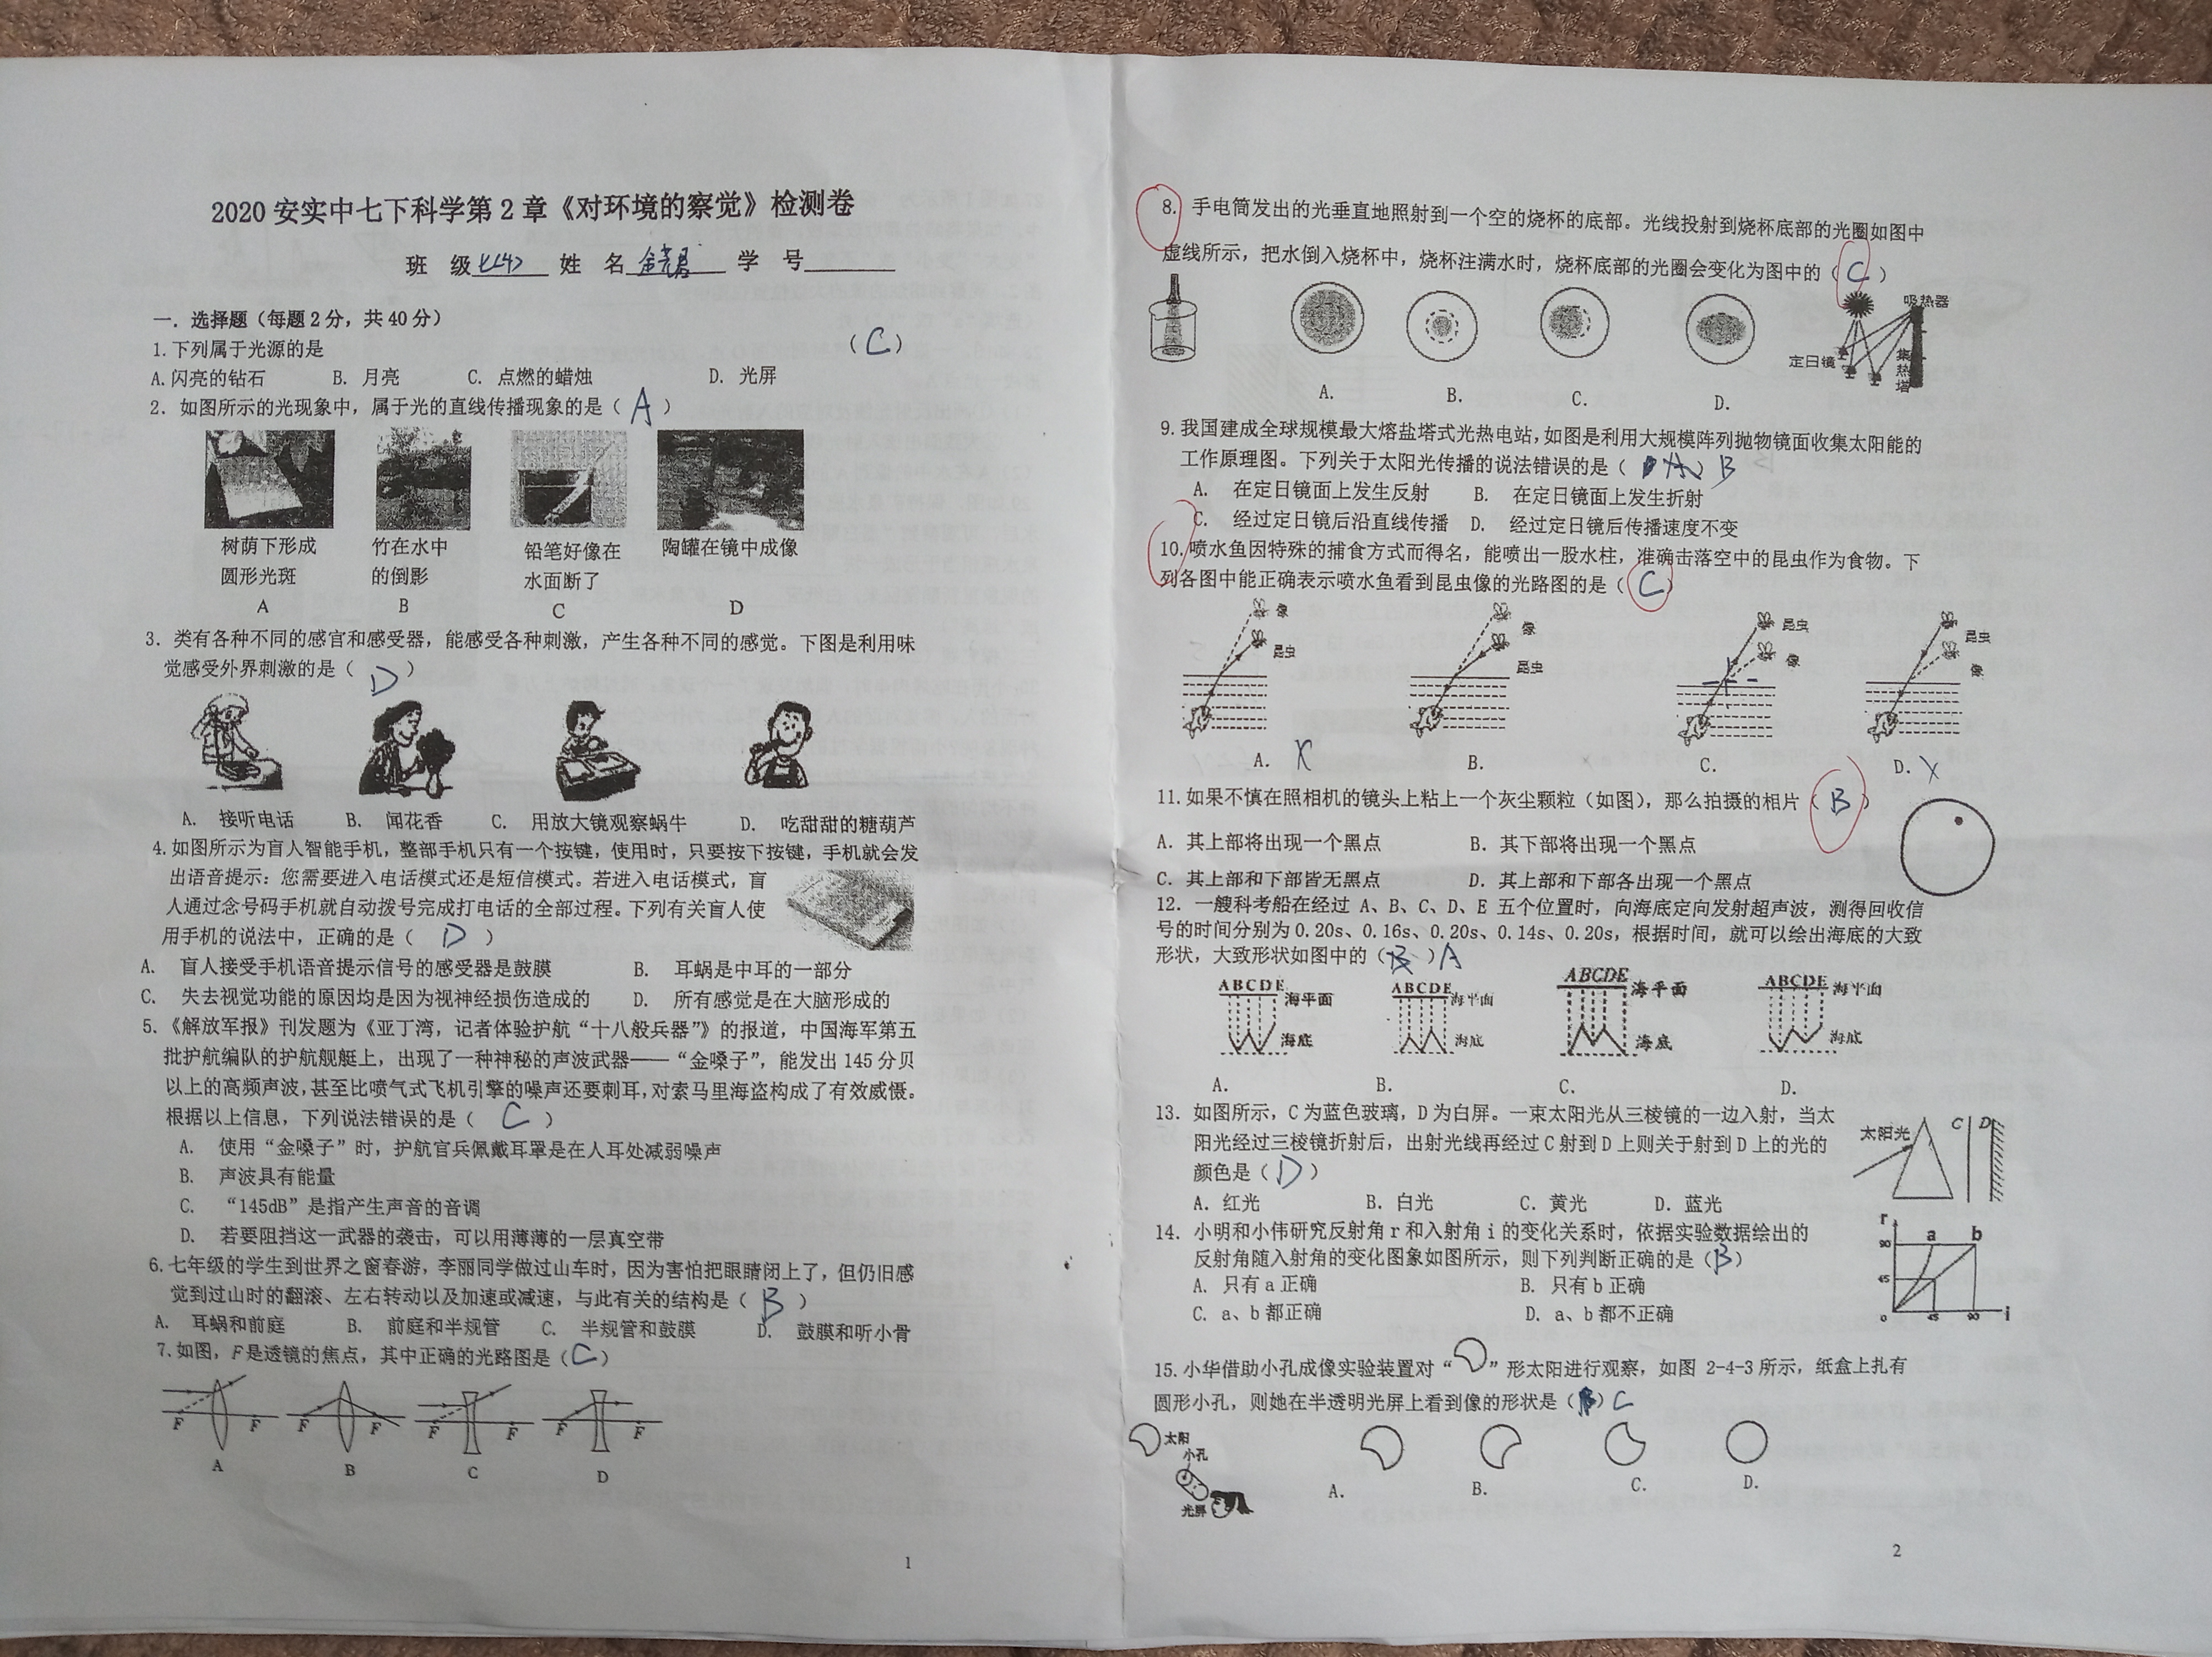 2020 安实中七下科学第 2 章《对环境的察觉》检测卷
班 级 七(4) 姓 名 学 号
一．选择题（每题 2 分，共 40 分）
1.下列属于光源的是 （C）
A.闪亮的钻石 B. 月亮 C. 点燃的蜡烛 D. 光屏
2. 如图所示的光现象中，属于光的直线传播现象的是（ A ）
树荫下形成 竹在水中 铅笔好像在 陶罐在镜中成像
圆形光斑 的倒影 水面断了
A B C D
3. 类有各种不同的感官和感受器，能感受各种刺激，产生各种不同的感觉。下图是利用味
觉感受外界刺激的是（ D ）
A. 接听电话 B. 闻花香 C. 用放大镜观察蜗牛 D. 吃甜甜的糖葫芦
4.如图所示为盲人智能手机，整部手机只有一个按键，使用时，只要按下按键，手机就会发
出语音提示：您需要进入电话模式还是短信模式。若进入电话模式，盲
人通过念号码手机就自动拨号完成打电话的全部过程。下列有关盲人使
用手机的说法中，正确的是（ D ）
A. 盲人接受手机语音提示信号的感受器是鼓膜 B. 耳蜗是中耳的一部分
C. 失去视觉功能的原因均是因为视神经损伤造成的 D. 所有感觉是在大脑形成的
5.《解放军报》刊发题为《亚丁湾，记者体验护航“十八般兵器”》的报道，中国海军第五
批护航编队的护航舰艇上，出现了一种神秘的声波武器——“金嗓子”，能发出 145 分贝
以上的高频声波，甚至比喷气式飞机引擎的噪声还要刺耳，对索马里海盗构成了有效威慑。
根据以上信息，下列说法错误的是（ C ）
A. 使用“金嗓子”时，护航官兵佩戴耳罩是在人耳处减弱噪声
B. 声波具有能量
C. “145dB”是指产生声音的音调
D. 若要阻挡这一武器的袭击，可以用薄薄的一层真空带
6.七年级的学生到世界之窗春游，李丽同学做过山车时，因为害怕把眼睛闭上了，但仍旧感
觉到过山时的翻滚、左右转动以及加速或减速，与此有关的结构是（ B ）
A. 耳蜗和前庭 B. 前庭和半规管 C. 半规管和鼓膜 D. 鼓膜和听小骨
7.如图，F是透镜的焦点，其中正确的光路图是（C）
F F F F F F F F
A B C D
1
8. 手电筒发出的光垂直地照射到一个空的烧杯的底部。光线投射到烧杯底部的光圈如图中
虚线所示，把水倒入烧杯中，烧杯注满水时，烧杯底部的光圈会变化为图中的（ C ）
吸热器
定日镜
集热塔
A. B. C. D.
9.我国建成全球规模最大熔盐塔式光热电站，如图是利用大规模阵列抛物镜面收集太阳能的
工作原理图。下列关于太阳光传播的说法错误的是（ A ） B
A. 在定日镜面上发生反射 B. 在定日镜面上发生折射
C. 经过定日镜后沿直线传播 D. 经过定日镜后传播速度不变
10.喷水鱼因特殊的捕食方式而得名，能喷出一股水柱，准确击落空中的昆虫作为食物。下
列各图中能正确表示喷水鱼看到昆虫像的光路图的是（ C ）
像 昆虫 像 昆虫 昆虫 像 昆虫 像
A. X B. C. D. X
11.如果不慎在照相机的镜头上粘上一个灰尘颗粒（如图），那么拍摄的相片（ B ）
A．其上部将出现一个黑点 B．其下部将出现一个黑点
C．其上部和下部皆无黑点 D．其上部和下部各出现一个黑点
12．一艘科考船在经过 A、B、C、D、E 五个位置时，向海底定向发射超声波，测得回收信
号的时间分别为 0.20s、0.16s、0.20s、0.14s、0.20s，根据时间，就可以绘出海底的大致
形状，大致形状如图中的（B）A
ABCDE 海平面 ABCDE 海平面 ABCDE 海平面 ABCDE 海平面
海底 海底 海底 海底
A. B. C. D.
13．如图所示，C 为蓝色玻璃，D 为白屏。一束太阳光从三棱镜的一边入射，当太
阳光经过三棱镜折射后，出射光线再经过 C 射到 D 上则关于射到 D 上的光的
颜色是（ D ）
太阳光 C D
A．红光 B．白光 C．黄光 D．蓝光
14． 小明和小伟研究反射角 r 和入射角 i 的变化关系时，依据实验数据绘出的
反射角随入射角的变化图象如图所示，则下列判断正确的是（B）
A. 只有 a 正确 B. 只有 b 正确
C. a、b 都正确 D. a、b 都不正确
r a b
90
45
0 45 90 i
15.小华借助小孔成像实验装置对“ ”形太阳进行观察，如图 2-4-3 所示，纸盒上扎有
圆形小孔，则她在半透明光屏上看到像的形状是（B）C
太阳
小孔
光屏
A. B. C. D.
2